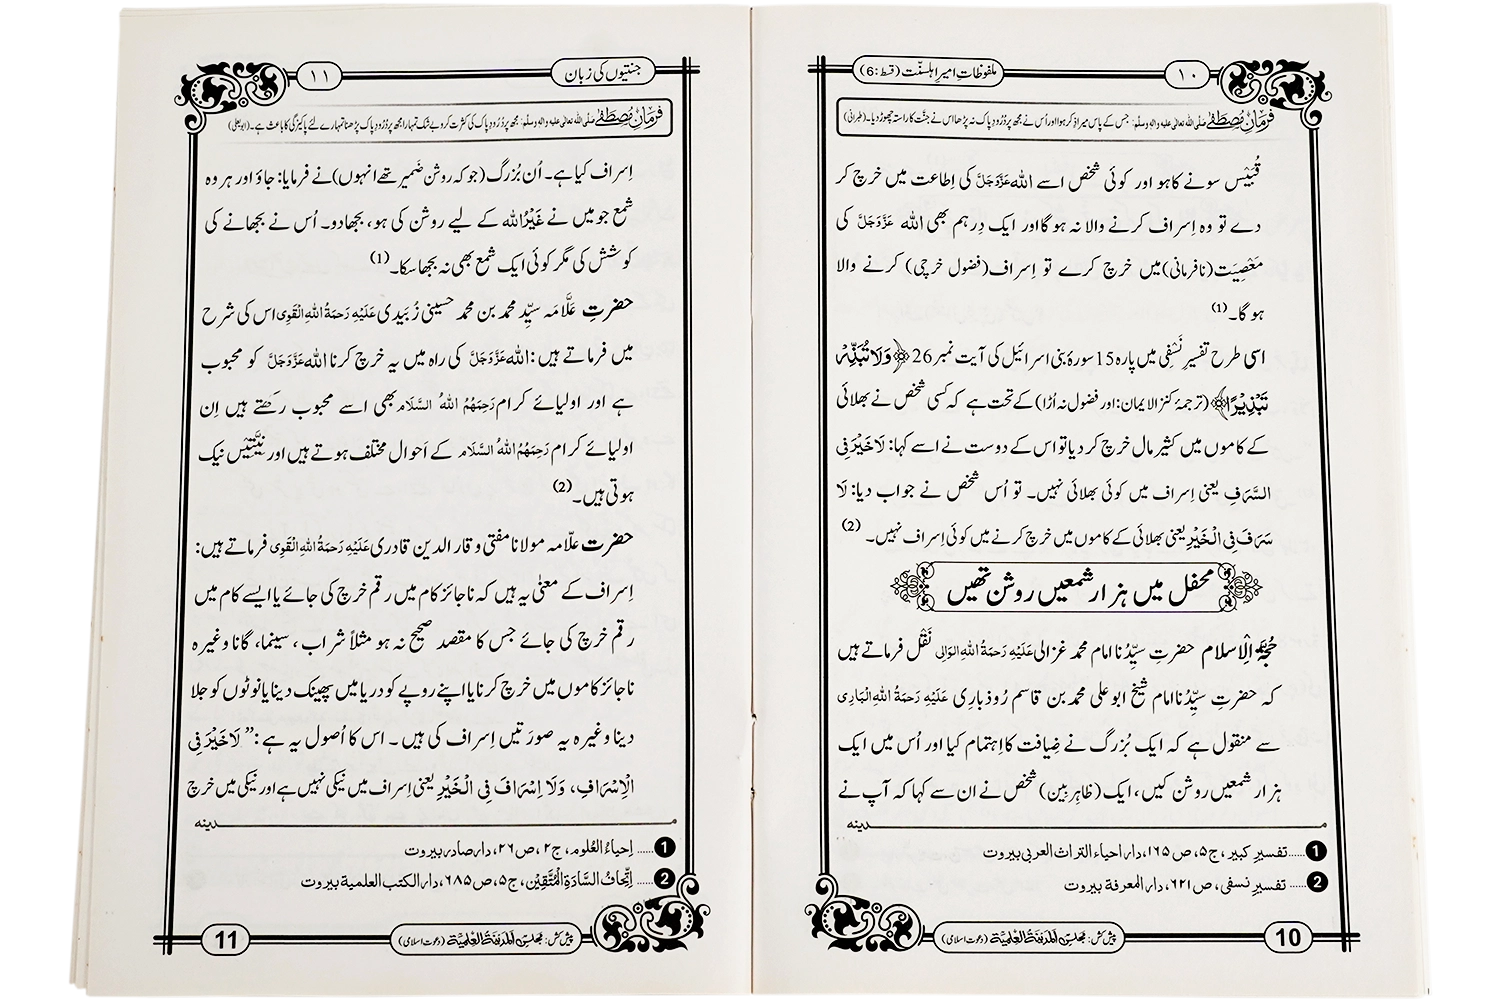 ملفوظاتِ امیرِ اہلسنّت (قسط:6)
۱۰
فرمانِ مصطفٰے صلی اللہ تعالٰی علیہ والہٖ وسلم: جس کے پاس میرا ذکر ہوا اور اُس نے مجھ پر دُرُودِ پاک نہ پڑھا اس نے جنّت کا راستہ چھوڑ دیا۔ (طبرانی)
قُبَیْس سونے کا ہو اور کوئی شخص اسے اللہ عَزَّوَجَلَّ کی اِطاعت میں خرچ کر
دے تو وہ اِسراف کرنے والا نہ ہو گا اور ایک دِرہم بھی اللہ عَزَّوَجَلَّ کی
مَعْصِیَت (نافرمانی) میں خرچ کرے تو اِسراف (فضول خرچی) کرنے والا
ہو گا۔ (1)
اسی طرح تفسیرِ نَسَفِی میں پارہ 15 سورۂ بنی اسرائیل کی آیت نمبر 26 ﴿وَلَا تُبَذِّرْ
تَبْذِیْرًا﴾ (ترجمۂ کنز الایمان: اور فضول نہ اُڑا) کے تحت ہے کہ کسی شخص نے بھلائی
کے کاموں میں کثیر مال خرچ کر دیا تو اس کے دوست نے اسے کہا: لَاخَیْرَ فِی
السَّرَفِ یعنی اِسراف میں کوئی بھلائی نہیں۔ تو اُس شخص نے جواب دیا: لَا
سَرَفَ فِی الْخَیْرِ یعنی بھلائی کے کاموں میں خرچ کرنے میں کوئی اِسراف نہیں۔ (2)
محفل میں ہزار شمعیں روشن تھیں
حُجَّۃُ الْاِسلام حضرتِ سیِّدُنا امام محمد غزالی عَلَیْہِ رَحمَۃُ اللہِ الْوَالِی نَقْل فرماتے ہیں
کہ حضرتِ سیِّدُنا امام شیخ ابو علی محمد بن قاسم رُوذباری عَلَیْہِ رَحمَۃُ اللہِ الْبَارِی
سے منقول ہے کہ ایک بُزرگ نے ضِیافت کا اِہتمام کیا اور اُس میں ایک
ہزار شمعیں روشن کیں، ایک (ظاہر بین) شخص نے ان سے کہا کہ آپ نے
مدینہ
1 ..... تفسیرِ کبیر، ج۵، ص ۱۶۵، دار احیاء التراث العربی بیروت
2 ..... تفسیرِ نسفی، ص ۶۲۱، دار المعرفۃ بیروت
پیش کش: مجلس المدینۃ العلمیۃ (دعوتِ اسلامی)
10
جنتیوں کی زبان
۱۱
فرمانِ مصطفٰے صلی اللہ تعالٰی علیہ والہٖ وسلم: مجھ پر دُرُودِ پاک کی کثرت کرو بے شک تمہارا مجھ پر دُرُودِ پاک پڑھنا تمہارے لئے پاکیزگی کا باعث ہے۔ (ابو یعلیٰ)
اِسراف کیا ہے۔ اُن بُزرگ (جو کہ روشن ضمیر تھے انہوں) نے فرمایا: جاؤ اور ہر وہ
شمع جو میں نے غَیْرُ اللہ کے لیے روشن کی ہو، بجھا دو۔ اُس نے بجھانے کی
کوشش کی مگر کوئی ایک شمع بھی نہ بجھا سکا۔ (1)
حضرتِ عَلَّامَہ سیِّد محمد بن محمد حسینی زُبَیدی عَلَیْہِ رَحمَۃُ اللہِ الْقَوِی اس کی شرح
میں فرماتے ہیں: اللہ عَزَّوَجَلَّ کی راہ میں یہ خرچ کرنا اللہ عَزَّوَجَلَّ کو محبوب
ہے اور اولیائے کرام رَحِمَہُمُ اللہُ السَّلَام بھی اسے محبوب رکھتے ہیں اِن
اولیائے کرام رَحِمَہُمُ اللہُ السَّلَام کے اَحوال مختلف ہوتے ہیں اور نیَّتَیں نیک
ہوتی ہیں۔ (2)
حضرت علّامہ مولانا مفتی وقار الدین قادری عَلَیْہِ رَحمَۃُ اللہِ الْقَوِی فرماتے ہیں:
اِسراف کے معنٰی یہ ہیں کہ ناجائز کام میں رقم خرچ کی جائے یا ایسے کام میں
رقم خرچ کی جائے جس کا مقصد صحیح نہ ہو مثلاً شراب، سینما، گانا وغیرہ
ناجائز کاموں میں خرچ کرنا یا اپنے روپے کو دریا میں پھینک دینا یا نوٹوں کو جلا
دینا وغیرہ یہ صورَتیں اِسراف کی ہیں۔ اس کا اُصول یہ ہے: ”لَاخَیْرَ فِی
الْاِسْرَافِ، وَلَا اِسْرَافَ فِی الْخَیْرِ یعنی اِسراف میں نیکی نہیں ہے اور نیکی میں خرچ
مدینہ
1 ..... اِحیاءُ العُلوم، ج۲، ص ۲۶، دار صادر بیروت
2 ..... اِتِّحافُ السَّادَۃِ الْمُتَّقِیْن، ج۵، ص ۶۸۵، دار الکتب العلمیۃ بیروت
پیش کش: مجلس المدینۃ العلمیۃ (دعوتِ اسلامی)
11